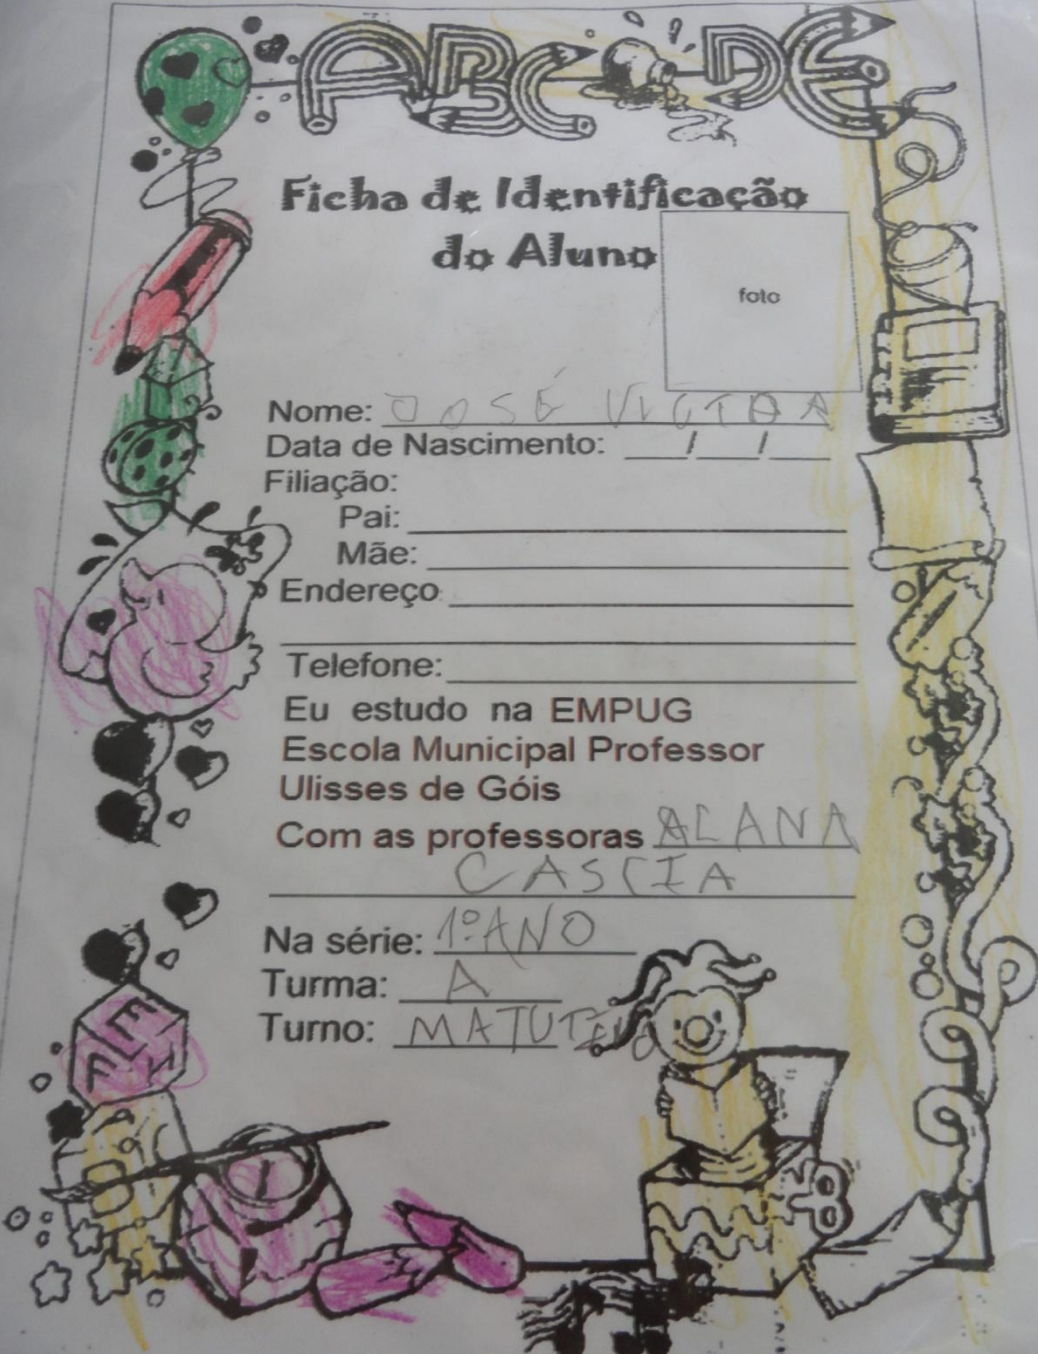 ABC DE
Ficha de Identificação
do Aluno
foto
Nome: JOSÉ VICTOR
Data de Nascimento: ___/___/___
Filiação:
Pai:
Mãe:
Endereço:
Telefone:
Eu estudo na EMPUG
Escola Municipal Professor
Ulisses de Góis
Com as professoras ALANA
CASCIA
Na série: 1º ANO
Turma: A
Turno: MATUTINO